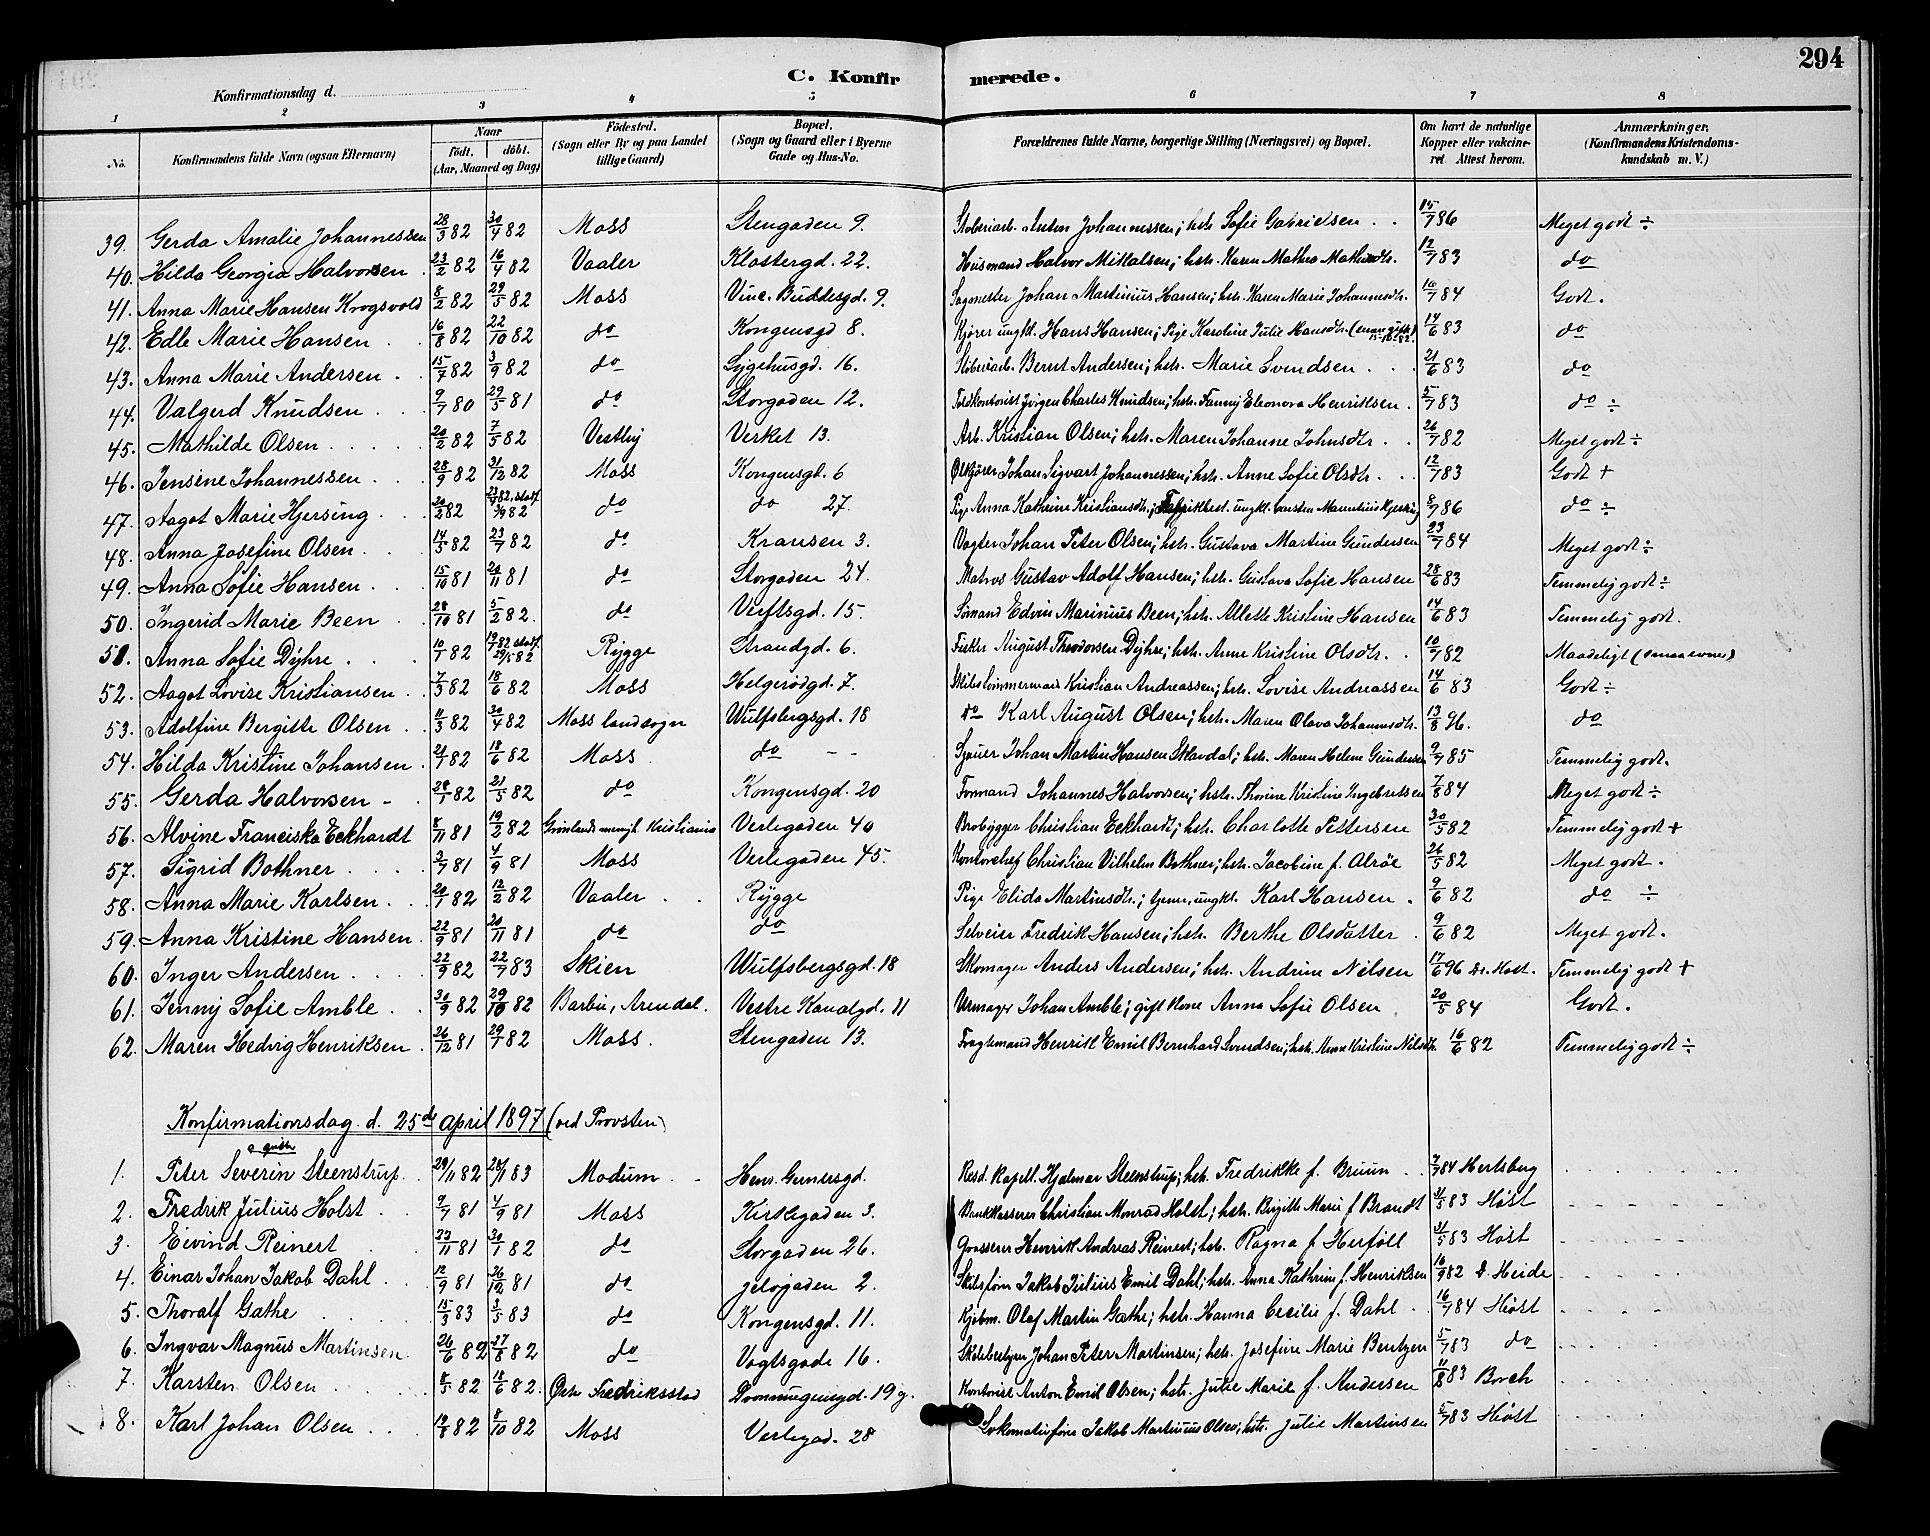 294
C. Konfirmerede.
Konfirmationsdag d.
1 2 3 4 5 6 7 8
No. Konfirmandens fulde Navn (ogsaa Efternavn) Naar födt. döbt. (Aar, Maaned og Dag) Födested. (Sogn eller By og paa Landet tillige Gaard) Bopæl. (Sogn og Gaard eller i Byerne Gade og Hus-No. Forældrenes fulde Navne, borgerlige Stilling (Næringsvei) og Bopæl. Om havt de naturlige Kopper eller vakcineret Attest herom. Anmærkninger. (Konfirmandens Kristendomskundskab m. V.)
39. Gerda Amalie Johannessen 28/3 82 30/4 82 Moss Stengaden 9. Støberiarb. Anton Johannessen; hstr. Sofie Gabrielsen 15/7 86 Meget godt ÷
40. Hilda Georgia Halvorsen 23/2 82 16/4 82 Vaaler Klostergd. 22. Husmand Halvor Mikkalsen; hstr. Karen Mathea 12/7 83 do
41. Anna Marie Hansen Krogsvold 8/2 82 29/5 82 Moss Vinc. Buddesgd. 9. Sagmester Johan Martinius Hansen; hstr. Karen Marie Johannesdtr. 10/7 84 Godt.
42. Edle Marie Hansen 16/8 82 22/10 82 do Kongensgd 8. Kjører ungkl. Hans Hansen; Pige Karoline Julie Hansdtr. 14/6 83 do
43. Anna Marie Andersen 15/7 82 3/9 82 do Sygehusgd. 16. Støberiarb. Bernt Andersen; hstr. Marie Svendsen 21/6 83 do
44. Valgerd Knudsen 9/7 80 29/5 81 do Storgaden 12. Toldkontorist Jørgen Charles Knudsen; hstr. Fanny Eleonora Henriksen. 5/7 83 do ÷
45. Mathilde Olsen 20/2 82 7/5 82 Vestby Verket 13. Arb. Kristian Olsen; hstr. Maren Johanne Johnsdtr 26/7 82 Meget godt ÷
46. Jensine Johannessen 28/9 82 31/12 82 Moss Kongensgd. 6 Ølkjører Johan Sigvart Johannessen; hstr. Anne Sofie Olsdtr. 12/7 83 Godt +
47. Aagot Marie Hjersing 20/2 82 do do 27. Pige Anna Kathrine Kristiansdtr.; ungkl. 8/7 86 do ÷
48. Anna Josefine Olsen 14/5 82 23/7 82 do Kransen 3. Vogter Johan Peter Olsen; hstr. Gustava Martine Gundersen 23/7 84 Meget godt ÷
49. Anna Sofie Hansen 15/10 81 20/11 81 do Storgaden 24. Matros Gustav Adolf Hansen; hstr. Gustava Sofie Hansen 28/6 83 Temmelig godt ÷
50. Ingerid Marie Been 28/10 81 5/2 82. do Verftsgd. 15. Sømand Edvin Marinius Been; hstr. Allette Kristine Hansen 14/6 83 Temmelig godt.
51. Anna Sofie Dyhre 10/1 82 Rygge Strandgd. 6. Fisker August Theodorsen Dyhre; hstr. Anne Kristine Olsdtr. 10/7 82 Maadeligt (smaa evner)
52. Aagot Lovise Kristiansen 7/3 82 18/6 82 Moss Helgerødgd. 7. Skibstømmermand Kristian Andreassen; hstr. Lovise Andreassen 14/6 83 Godt ÷
53. Adolfine Bergitte Olsen 11/3 82 30/4 82 Moss landsogn Wulfsbergsgd. 18 do Karl August Olsen; hstr. Maren Olava Johannesdtr. 13/8 96. do
54. Hilda Kristine Johansen 21/1 82 18/6 82 Moss do Sjauer Johan Martin Hansen Skavdal; hstr. Maren Helene Gundersen 9/7 85 Temmelig godt.
55. Gerda Halvorsen 28/1 82 21/5 82 do Kongensgd. 20 Formand Johannes Halvorsen; hstr. Thorine Kristine Ingebretsen 7/8 84 Meget godt ÷
56. Alvine Franciska Eckhardt 8/11 81 19/2 82 Grønlands menigh. Kristiania Verlegaden 40 Brobygger Christian Eckhardt; hstr. Charlotte Pettersen 30/5 82 Temmelig godt +
57. Sigrid Bothner 3/7 81 4/9 81 Moss Verlegaden 45. Kontorchef Christian Vilhelm Bothner; hstr. Jacobine f. Alröe 26/5 82 Meget godt.
58. Anna Marie Karlsen 20/1 82 12/2 82 Vaaler Rygge Pige Elida Martinsdtr.; tjener, ungkl. Karl Hansen 9/6 82 do ÷
59. Anna Kristine Hansen 22/9 81 20/11 81 do do Selveier Fredrik Hansen; hstr. Berthe Olsdatter 9/6 82 Meget godt.
60. Inger Andersen 22/9 82 22/7 83 Skien Wulfsbergsgd. 18 Skomager Anders Andersen; hstr. Andrine Nilsen 17/6 96 Dr. Høst. Temmelig godt +
61. Jenny Sofie Amble 30/9 82 29/10 82 Barbu, Arendal. Vestre Kanalgd. 11 Urmager Johan Amble; gift Kone Anna Sofie Olsen 20/5 84 Godt.
62. Maren Hedvig Henriksen 26/12 81 29/7 82 Moss. Stengaden 13. Fragtemand Henrik Emil Bernhard Svendsen; hstr. Anne Kristine Nilsdtr. 16/6 82 Temmelig godt ÷
Konfirmationsdag d. 25de April 1897 (ved Provsten)
gutter
1. Peter Severin Steenstrup 29/11 82 28/1 83 Modum Henr. Gernersgd. Resd. Kapell. Hjalmar Steenstrup; hstr. Fredrikke f. Bruun 7/7 84 Hertsberg
2. Fredrik Julius Holst 9/7 81 4/9 81 Moss Kirkegaden 3. Bankkasserer Christian Monrad Holst; hstr. Birgitte Marie f Brandt 31/5 83 Høst
3. Eivind Reinert 23/11 81 30/1 82 do Storgaden 26. Grosserer Henrik Andreas Reinert; hstr. Ragna f Herföll 31/5 83 Höst
4. Einar Johan Jakob Dahl 12/9 81 26/12 81 do Jeløgaden 2. Skibsfører Jakob Julius Emil Dahl; hstr. Anna Kathrine f. Henriksen 16/9 82 D. Heide
5. Thoralf Gathe 15/3 83 3/5 83 do Kongensgd. 11. Kjøbm. Olaf Martin Gathe; hstr. Hanna Cecilie f. Dahl 16/7 84 Höst
6. Ingvar Magnus Martinsen 26/6 82 27/8 82 do Vogtsgade 16. Skolebestyrer Johan Peter Martinsen; hstr. Josefine Marie Bentzen 5/7 83 do
7. Karsten Olsen 8/5 82 18/6 82. Østr. Fredriksstad Dronningensgd. 19 g. Kontorist Anton Emil Olsen; hstr. Julie Marie f. Andersen 11/8 83 Borch
8. Karl Johan Olsen 19/8 82 8/10 82 Moss Verlegad. 28 Lokomotivfører Jakob Martinius Olsen; hstr. Julie Martinsen 5/7 83 Höst